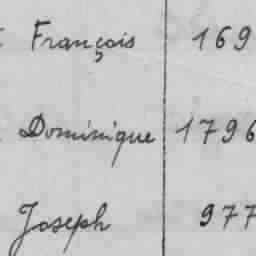 François 169
Dominique 1796
Joseph 977